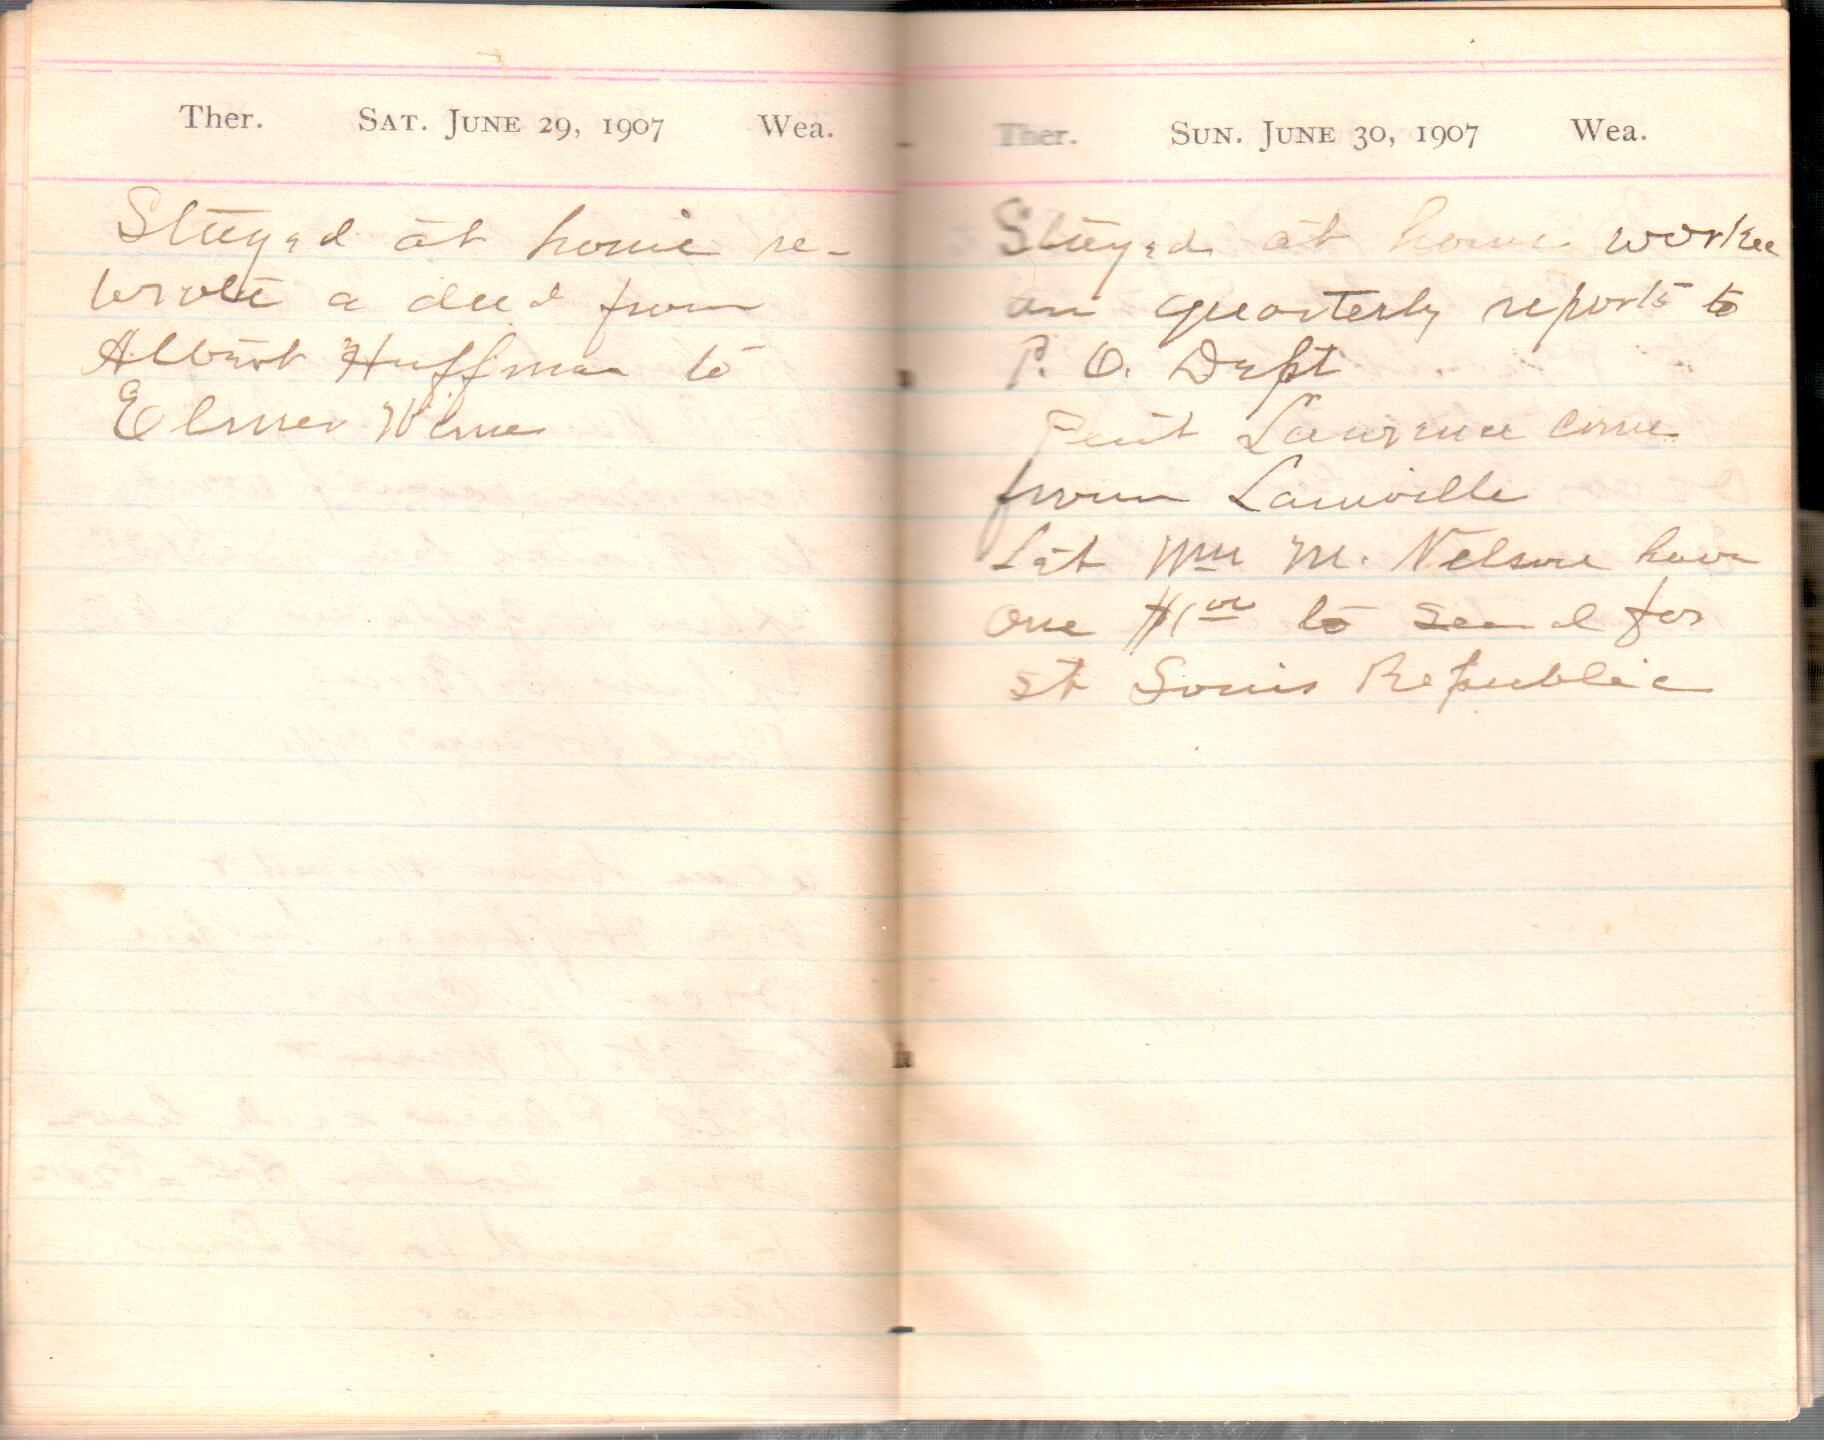 Ther. SAT. JUNE 29, 1907 Wea.
Stayed at home re-
wrote a deed from
Albert Huffman to
Elmer
Ther. SUN. JUNE 30, 1907 Wea.
Stayed at home worked
on quarterly reports to
P. O. Dept
Lawrence come
from
Let Wm M. Nelson have
one $1.00 to send for
St Louis Republic